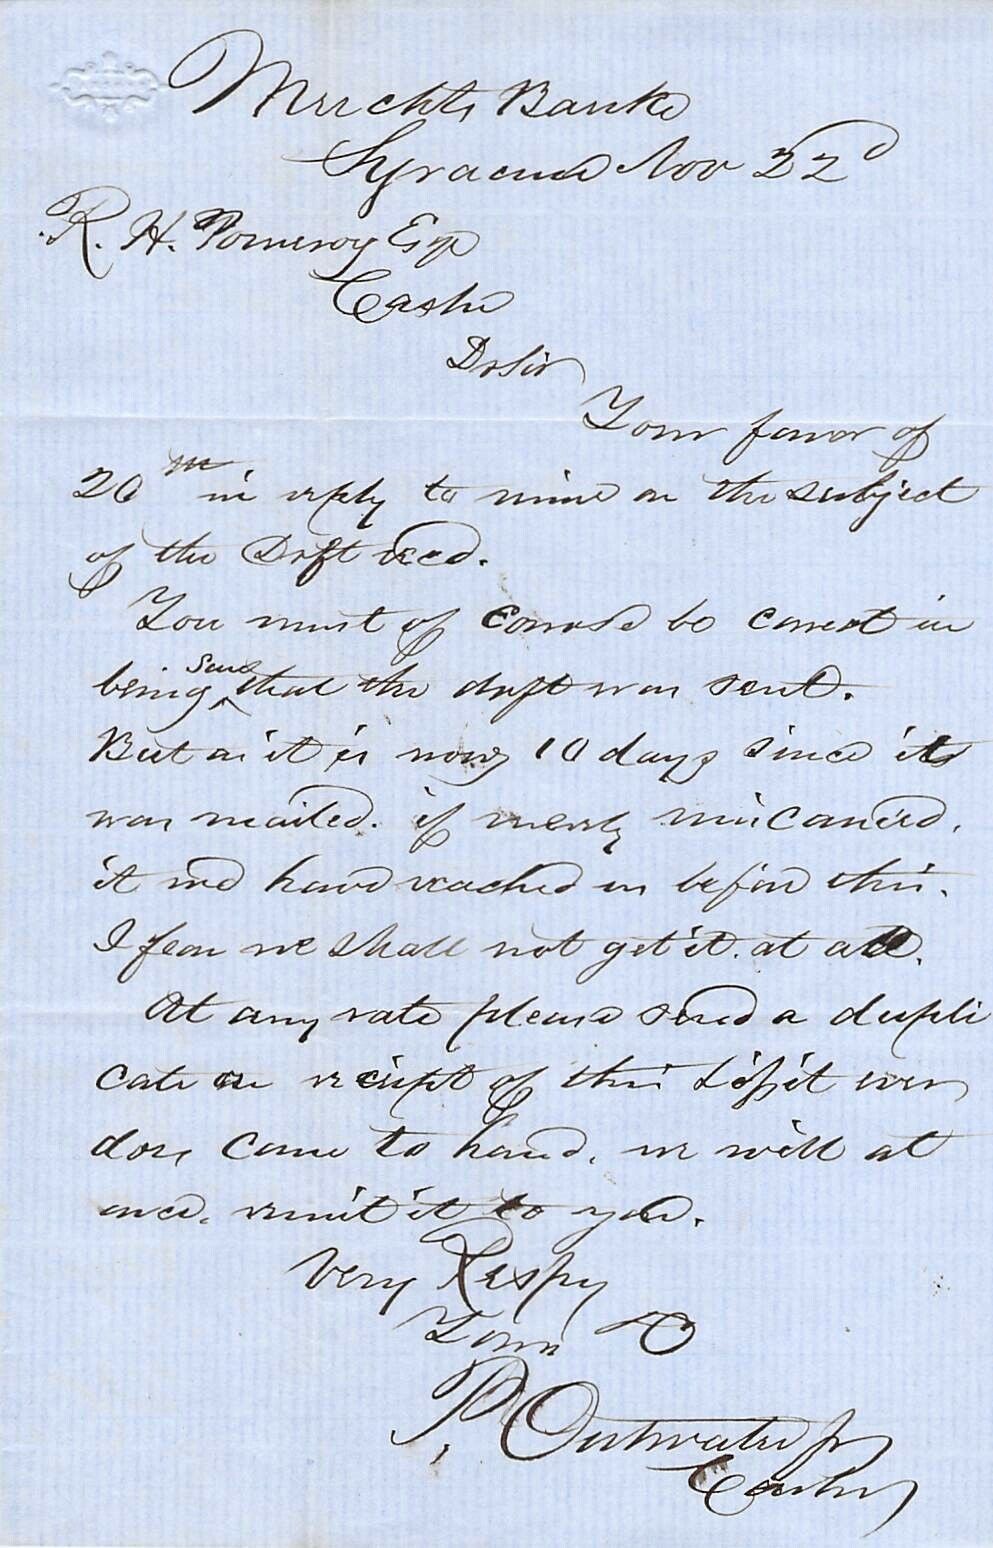 Merchts Bank
Syracuse Nov 22d
R. H. Pomeroy Esq
Cashr
Dr Sir
Your favor of
20th in reply to mine on the subject
of the Drft recd.
You must of course be correct in
being sure that the drft was sent.
But as it is now 10 days since it
was mailed. if merely miscarried,
it wd have reached us before this.
I fear we shall not get it at all.
At any rate please send a dupli
cate on receipt of this & if it ever
does come to hand, we will at
once, remit it to you.
Very Respy
Yours &c
P. Outwater Jr
Cashr